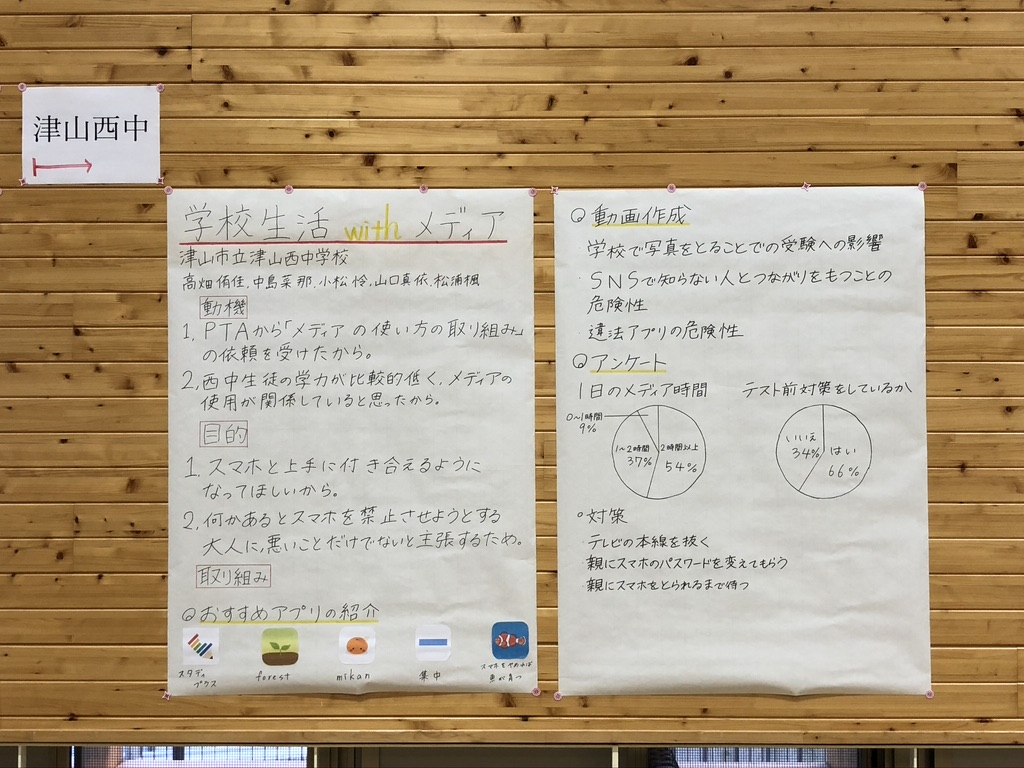 津山西中
学校生活 with メディア
津山市立津山西中学校
高畑侑佳,中島菜那,小松怜,山口真依,松浦楓
動機
1. PTAから「メディアの使い方の取り組み」
の依頼を受けたから。
2. 西中生徒の学力が比較的低く,メディアの
使用が関係していると思ったから。
目的
1. スマホと上手に付き合えるように
なってほしいから。
2. 何かあるとスマホを禁止させようとする
大人に,悪いことだけでないと主張するため。
取り組み
◎おすすめアプリの紹介
スタディ
プラス
forest
mikan
集中
スマホをやめれば
魚が育つ
◎動画作成
学校で写真をとることでの受験への影響
・SNSで知らない人とつながりをもつことの
危険性
・違法アプリの危険性
◎アンケート
1日のメディア時間
0〜1時間
9%
1〜2時間
37%
2時間以上
54%
テスト前対策をしているか
いいえ
34%
はい
66%
○対策
・テレビの本線を抜く
・親にスマホのパスワードを変えてもらう
・親にスマホをとられるまで待つ